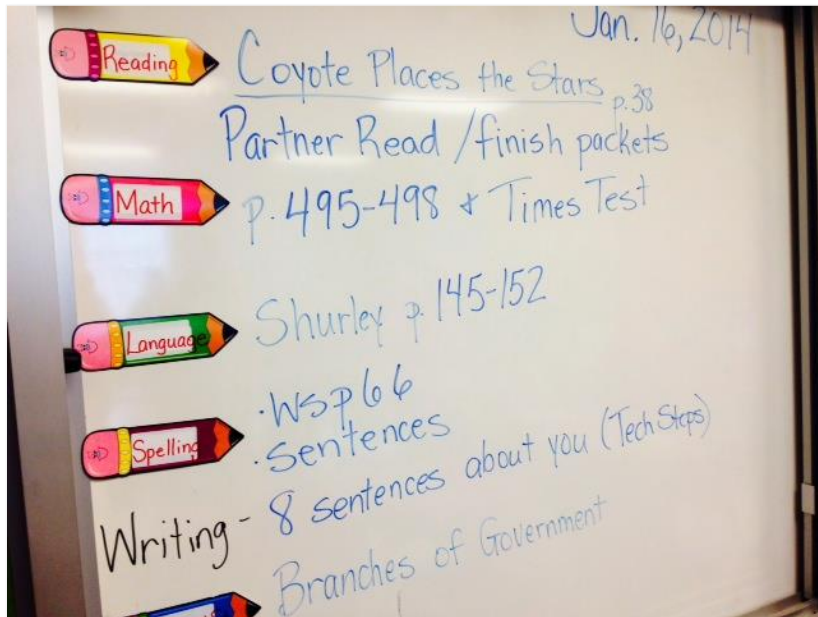 Jan. 16, 2014
Reading Coyote Places the Stars p.38
Partner Read / finish packets
Math p. 495-498 & Times Test
Language Shurley p. 145-152
Spelling · WS p 66
· Sentences
Writing - 8 sentences about you (Tech Steps)
Branches of Government